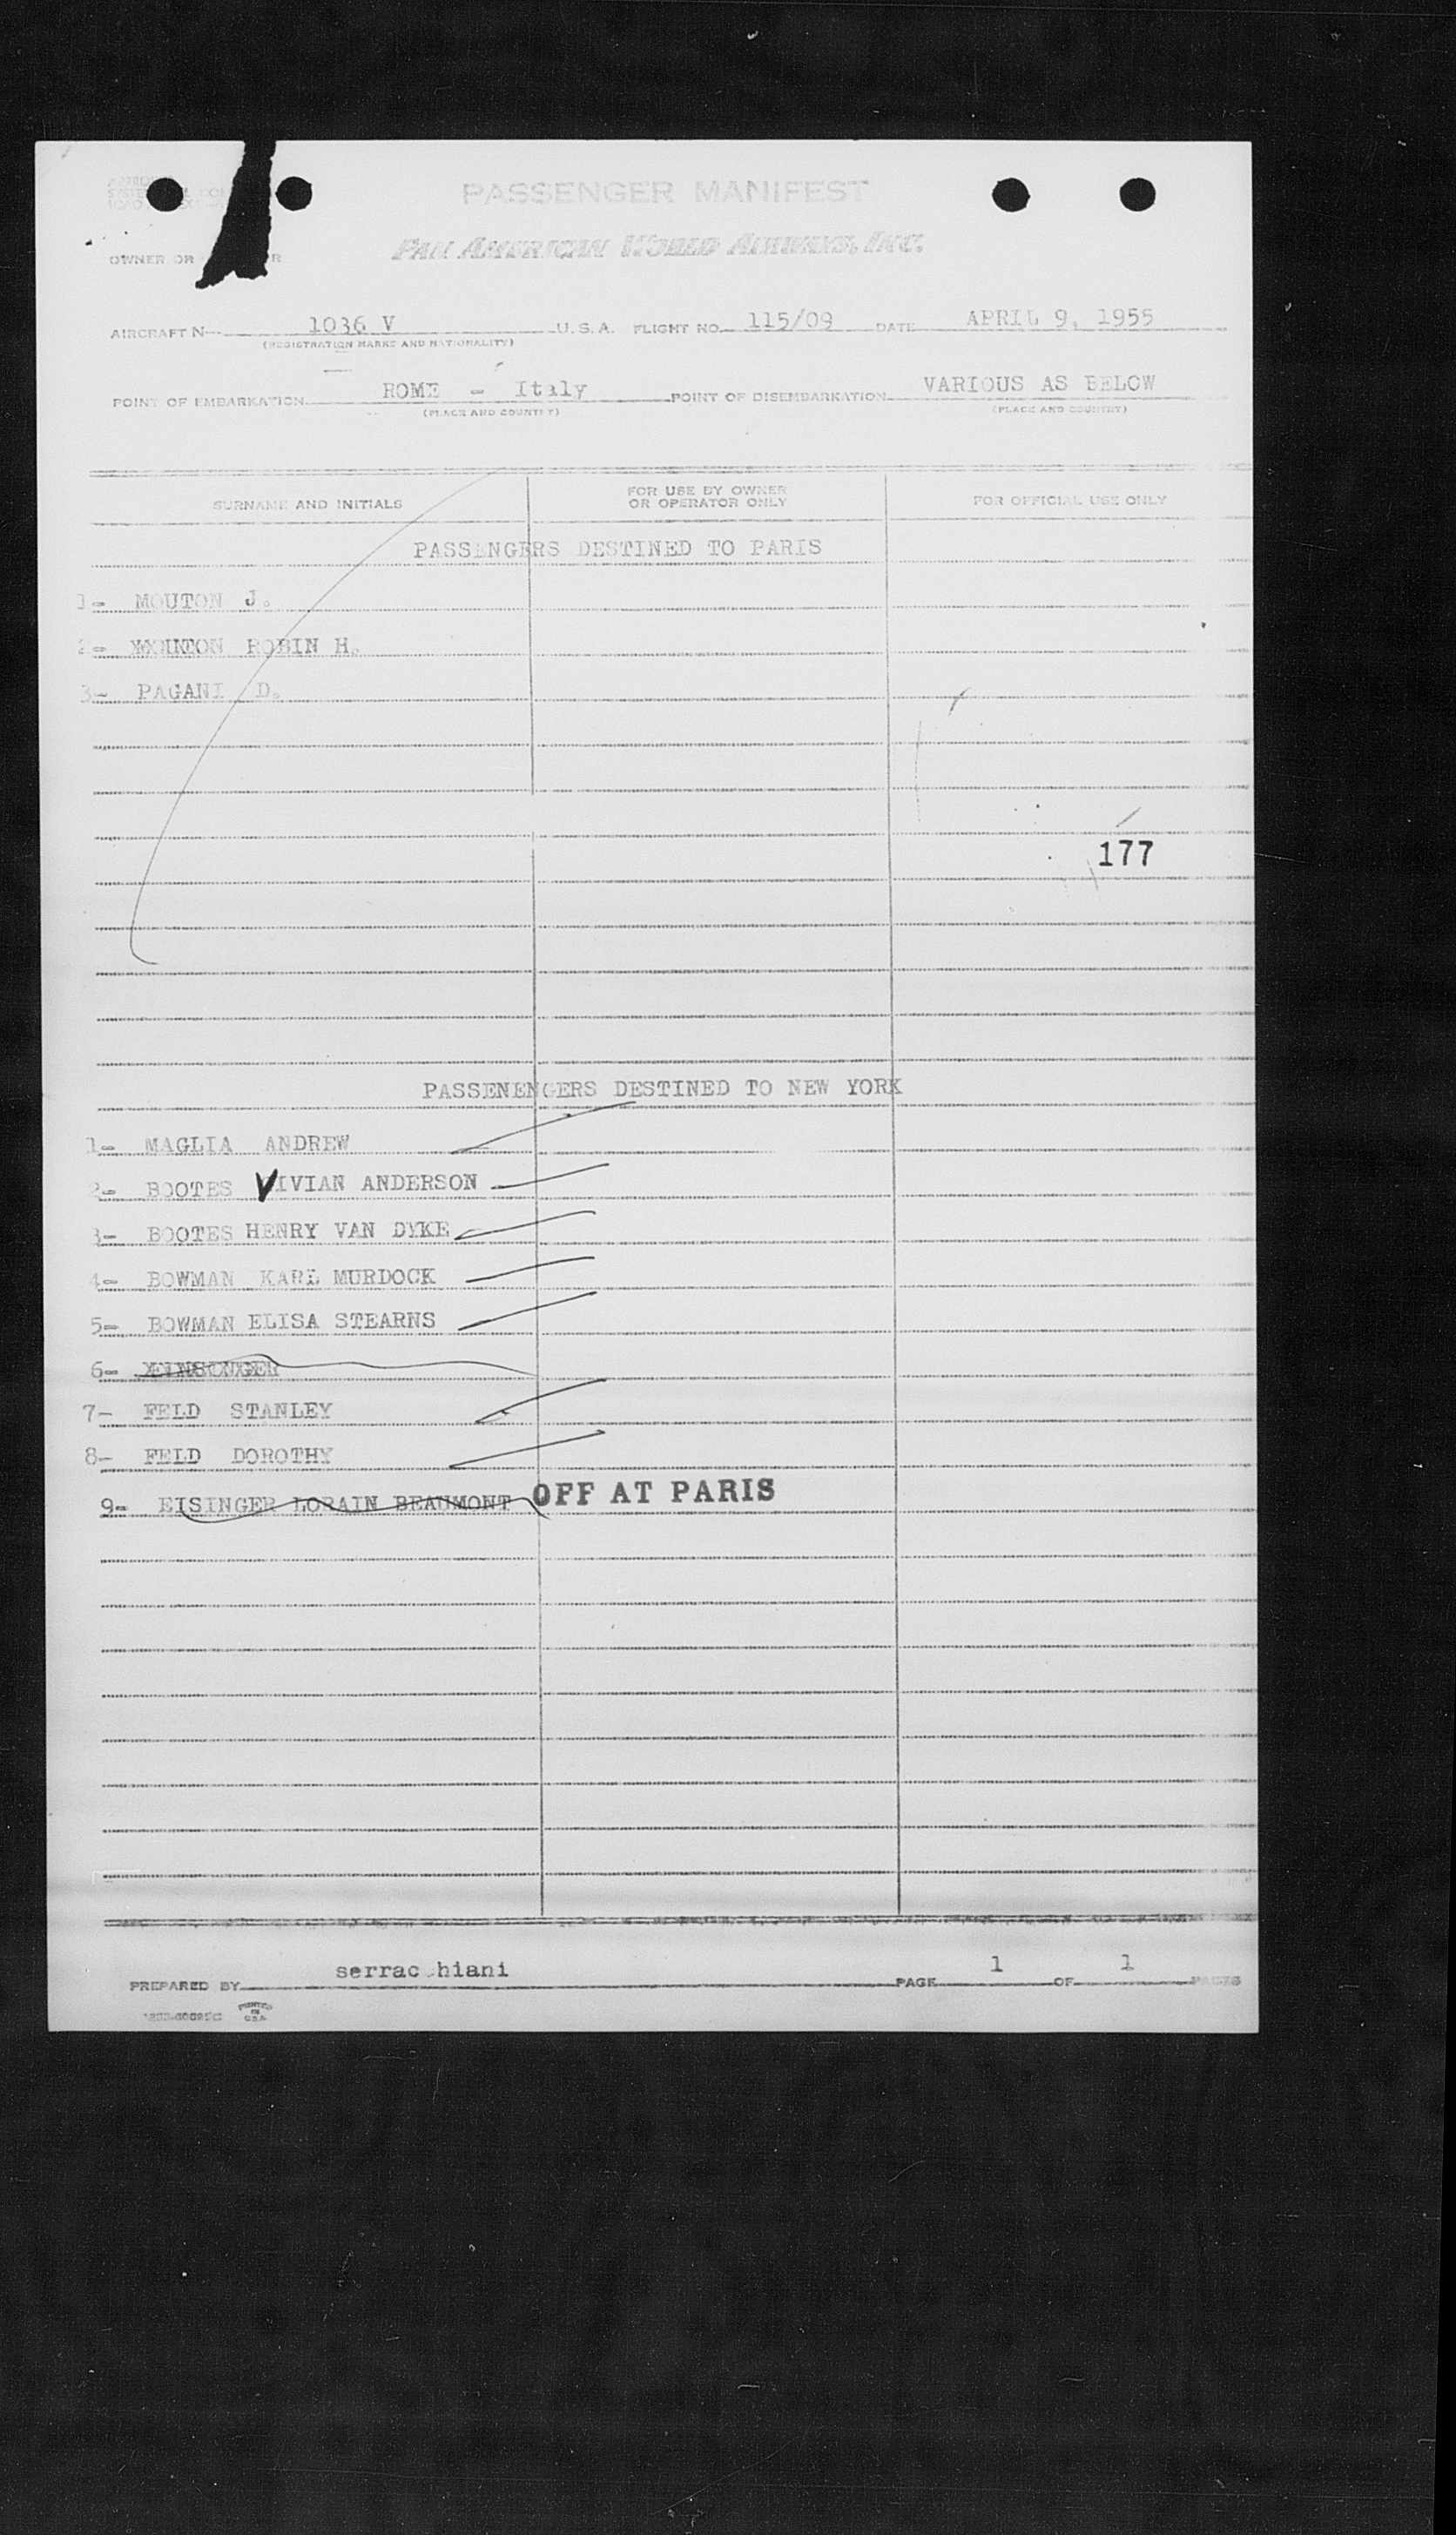 PASSENGER MANIFEST
PAN AMERICAN WORLD AIRWAYS, INC.
OWNER OR
AIRCRAFT N 1036 V U. S. A. FLIGHT NO. 115/09 DATE APRIL 9, 1955
(REGISTRATION MARKS AND NATIONALITY)
POINT OF EMBARKATION ROME - Italy POINT OF DISEMBARKATION VARIOUS AS BELOW
(PLACE AND COUNTRY) (PLACE AND COUNTRY)
SURNAME AND INITIALS FOR USE BY OWNER OR OPERATOR ONLY FOR OFFICIAL USE ONLY
PASSENGERS DESTINED TO PARIS
1- MOUTON J.
2- MOUTON ROBIN H.
3- PAGANI D.
177
PASSENENGERS DESTINED TO NEW YORK
1- MAGLIA ANDREW
2- BOOTES VIVIAN ANDERSON
3- BOOTES HENRY VAN DYKE
4- BOWMAN KARL MURDOCK
5- BOWMAN ELISA STEARNS
6-
7- FELD STANLEY
8- FELD DOROTHY
9- EISINGER LORAIN BEAUMONT OFF AT PARIS
PREPARED BY serrac hiani PAGE 1 OF 1 PAGES
PRINTED IN U.S.A.